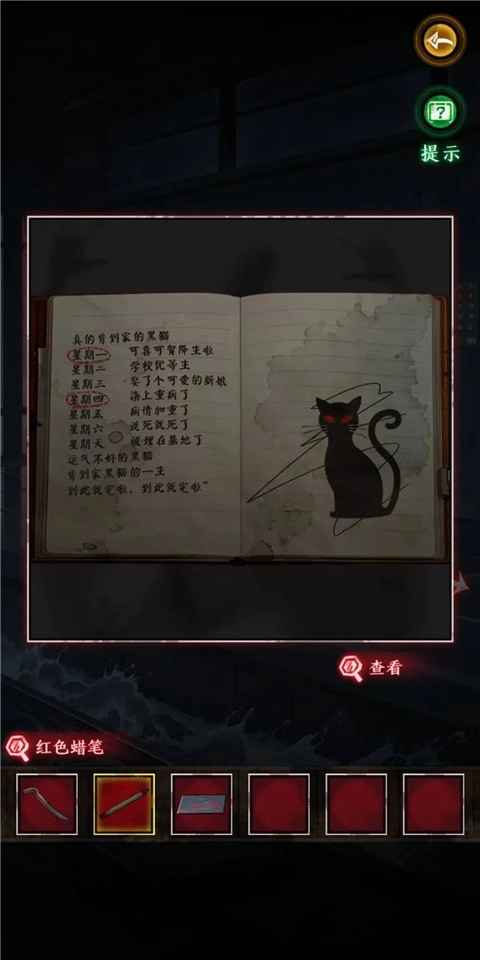 提示
真的背到家的黑猫
星期一 可喜可贺降生啦
星期二 学校优等生
星期三 娶了个可爱的新娘
星期四 染上重病了
星期五 病情加重了
星期六 说死就死了
星期天 被埋在墓地了
运气不好的黑猫
背到家黑猫的一生
到此就完啦，到此就完啦"
查看
红色蜡笔